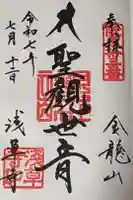 奉拝
金龍山
大聖観世音
浅草寺
令和七年
七月十二日